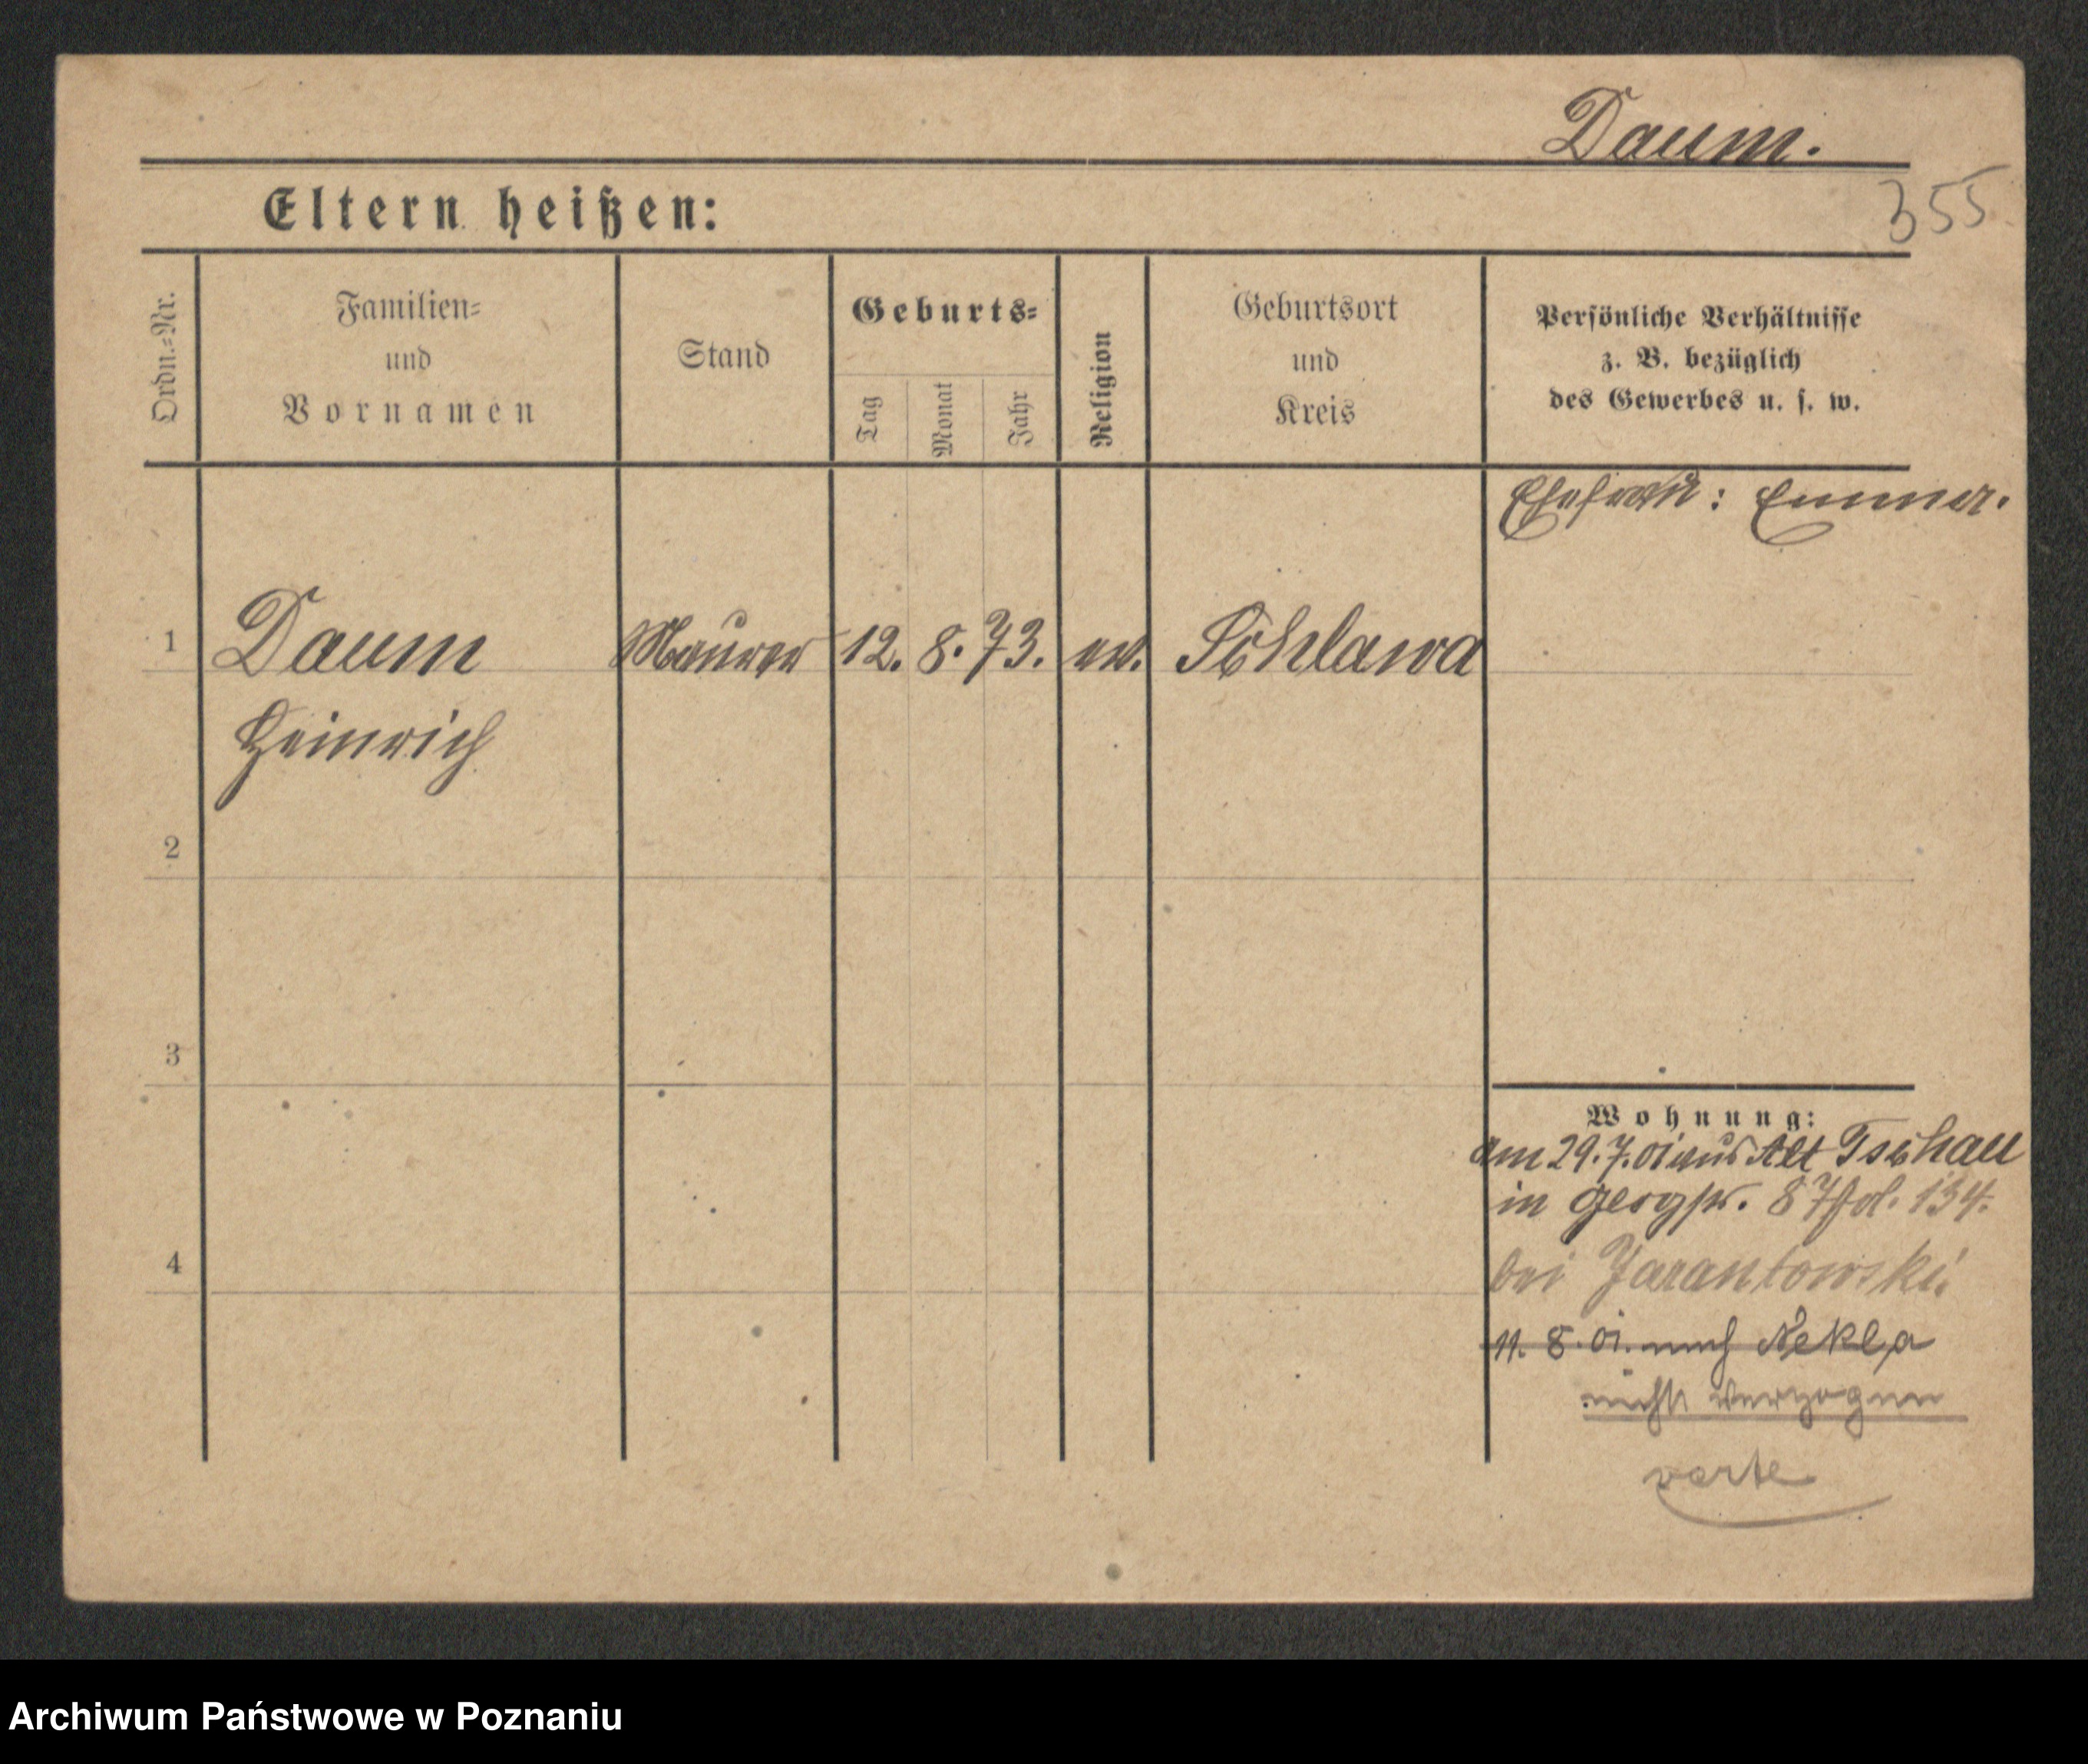 Daum.
355
Eltern heißen:
Ordn.-Nr.
Familien-
und
Vornamen
Stand
Geburts-
Tag
Monat
Jahr
Religion
Geburtsort
und
Kreis
Persönliche Verhältnisse
z. B. bezüglich
des Gewerbes u. s. w.
Ehefrau: Emma.
1 Daum Maurer 12. 8. 73. ev. Schlawa
Heinrich
2
3
4
Wohnung:
am 29.7.01 aus Alt Tschau
in 87 134.
bei Jarantowski
11. 8. 01. nach Nekla
nicht verzogen
verte
Archiwum Państwowe w Poznaniu